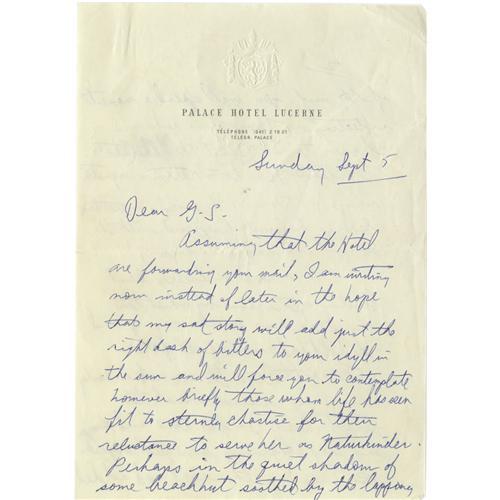 PALACE HOTEL LUCERNE
TÉLÉPHONE (041) 2 19 01
TÉLÉGR. PALACE
Sunday Sept 5
Dear G-S-
Assuming that the Hotel
are forwarding your mail, I am writing
now instead of later in the hope
that my sad story will add just the
right dash of bitters to your idyll in
the sun and will force you to contemplate
however briefly those whom life has seen
fit to sternly chastise for their
reluctance to serve her as Naturkinder.
Perhaps in the quiet shadow of
some beachhut soothed by the lapping